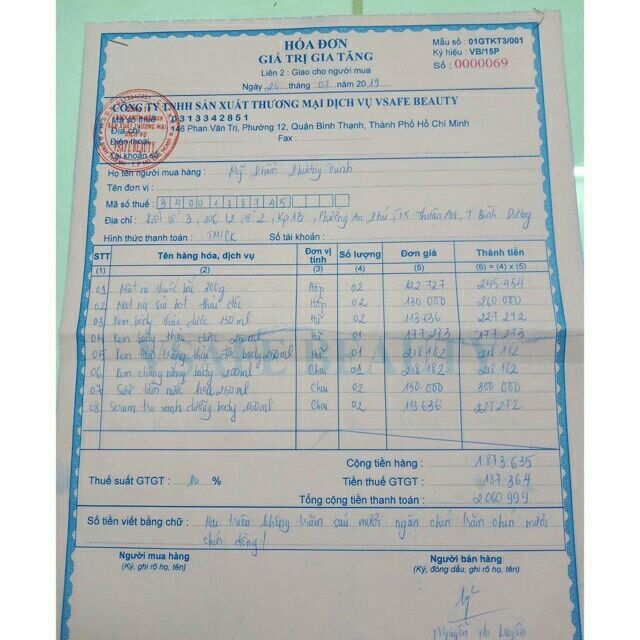 HÓA ĐƠN
GIÁ TRỊ GIA TĂNG
Liên 2 : Giao cho người mua
Ngày 26 tháng 07 năm 2019
Mẫu số : 01GTKT3/001
Ký hiệu : VB/15P
Số : 0000069
CÔNG TY TNHH SẢN XUẤT THƯƠNG MẠI DỊCH VỤ VSAFE BEAUTY
Mã số thuế : 0313342851
Địa chỉ : 146 Phan Văn Trị, Phường 12, Quận Bình Thạnh, Thành Phố Hồ Chí Minh
Điện thoại Fax :
Tài khoản số
SẢN XUẤT THƯƠNG MẠI
DỊCH VỤ
VSAFE BEAUTY
Họ tên người mua hàng : Mỹ Phẩm Phương Trinh
Tên đơn vị :
Mã số thuế : 3400188745
Địa chỉ : 3, 106 L2, tổ 2, Kp 1B, Phường An Phú, TX Thuận An, T Bình Dương
Hình thức thanh toán : TM/CK Số tài khoản :
STT Tên hàng hóa, dịch vụ Đơn vị tính Số lượng Đơn giá Thành tiền
(1) (2) (3) (4) (5) (6) = (4) x (5)
01 Mặt nạ thuốc bắc 200g Hộp 02 122.727 245.454
02 Mặt nạ sủi bọt thải độc Hộp 02 130 000 260 000
03 Kem body thảo dược 150ml Hũ 02 113 636 227 272
04 Kem body thảo dược 250ml Hũ 01 177 273 177 273
05 Kem trắng thải độc body 250ml Hũ 01 218 182 218 182
06 Kem chống nắng body 200ml Chai 01 218 182 218 182
07 Sữa tắm nước hoa 250ml Chai 02 150 000 300 000
08 Serum trà xanh dưỡng body 150ml Chai 02 113 636 227 272
SAFE BEAUTY
Cộng tiền hàng : 1 873 635
Thuế suất GTGT : 10 % Tiền thuế GTGT : 187 364
Tổng cộng tiền thanh toán : 2 060 999
Số tiền viết bằng chữ : Hai triệu không trăm sáu mươi ngàn chín trăm chín mươi
chín đồng /
Người mua hàng Người bán hàng
(Ký, ghi rõ họ, tên) (Ký, đóng dấu, ghi rõ họ, tên)
Nguyễn